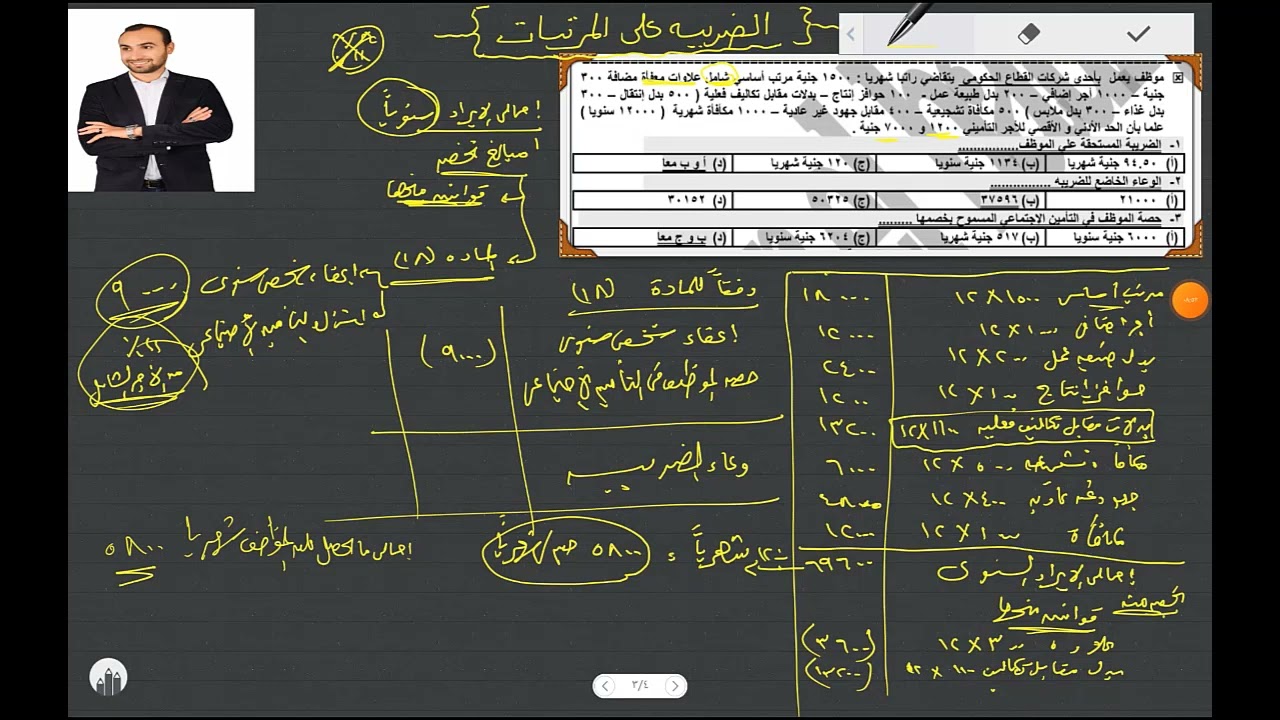 الضريبه على المرتبات
موظف يعمل بأحدى شركات القطاع الحكومى يتقاضي راتبا شهريا : ١٥٠٠ جنية مرتب أساسي شامل علاوات معفاة مضافة ٣٠٠
جنية – ١٠٠٠ أجر إضافي – ٢٠٠ بدل طبيعة عمل – ١٠٠ حوافز إنتاج – بدلات مقابل تكاليف فعلية ( ٥٠٠ بدل إنتقال – ٣٠٠
بدل غذاء – ٣٠٠ بدل ملابس ) ٥٠٠ مكافأة تشجيعية – ٤٠٠ مقابل جهود غير عادية – ١٠٠٠ مكافأة شهرية ( ١٢٠٠٠ سنويا )
علما بأن الحد الأدنى و الأقصي للأجر التأميني ١٢٠٠ و ٧٠٠٠ جنية .
١- الضريبة المستحقة علي الموظف................
(أ) ٩٤.٥٠ جنية شهريا (ب) ١١٣٤ جنية سنويا (ج) ١٢٠ جنية شهريا (د) أ و ب معا
٢- الوعاء الخاضع للضريبه ................
(أ) ٢١٠٠٠ (ب) ٣٧٥٩٦ (ج) ٥٠٣٢٥ (د) ٣٠١٥٢
٣- حصة الموظف في التأمين الاجتماعي المسموح بخصمها .........
(أ) ٦٠٠٠ جنية سنويا (ب) ٥١٧ جنية شهريا (ج) ٦٢٠٤ جنية سنويا (د) ب و ج معا
إجمالى الإيراد سنوياً
مبالغ تخصم
قوانين خاصة
المادة (١٨)
إعفاء شخصى سنوى ٩٠٠٠
من الأجر الشامل
وفقاً للمادة (١٨)
إعفاء شخصى سنوى (٩٠٠٠)
حصة الموظف فى التأمين الإجتماعى
وعاء الضريبه
مرتب أساسى ١٥٠٠ × ١٢ ١٨٠٠٠
أجر إضافى ١٠٠٠ × ١٢ ١٢٠٠٠
بدل طبيعة عمل ٢٠٠ × ١٢ ٢٤٠٠
حوافز إنتاج ١٠٠ × ١٢ ١٢٠٠
بدلات مقابل تكاليف فعليه ١١٠٠ × ١٢ ١٣٢٠٠
مكافأة تشجيعيه ٥٠٠ × ١٢ ٦٠٠٠
جهود غير عاديه ٤٠٠ × ١٢ ٤٨٠٠
مكافأة ١٠٠٠ × ١٢ ١٢٠٠٠
إجمالى الإيراد السنوى ٦٩٦٠٠
÷ ١٢ شهرياً = ٥٨٠٠ جنيه/شهرياً
إجمالى ما يحصل عليه الموظف شهرياً ٥٨٠٠
علاوة ٣٠٠ × ١٢ (٣٦٠٠)
بدل مقابل تكاليف ١١٠٠ × ١٢ (١٣٢٠٠)
٣/٤